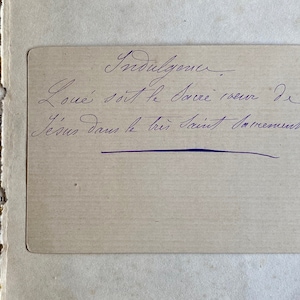 Indulgence
Loué soit le Sacré coeur de
Jésus dans le très Saint Sacrement